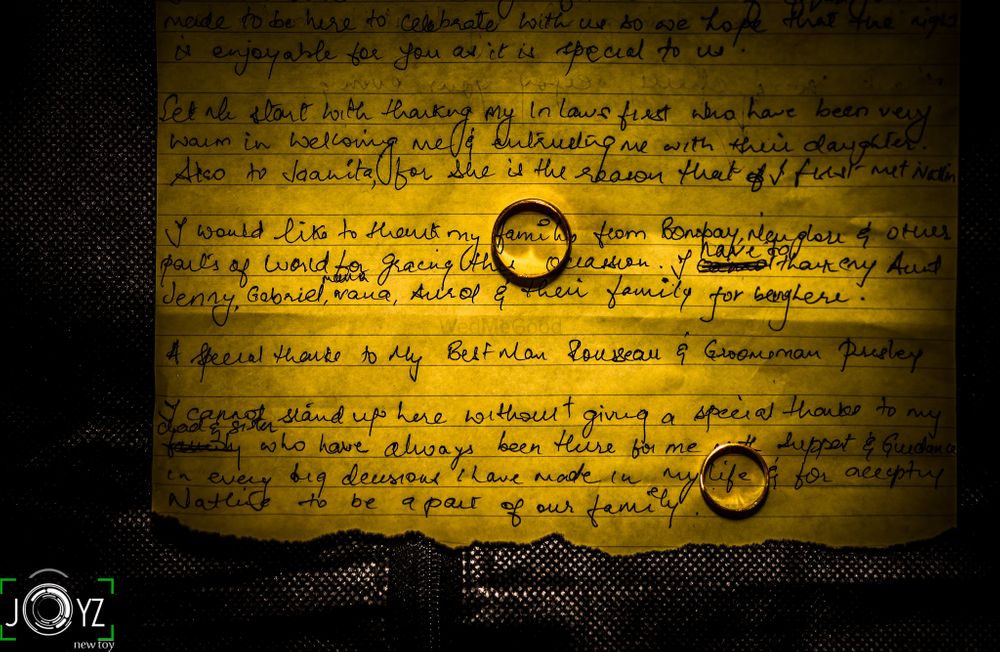 made to be here to celebrate with us so we hope that the night
is enjoyable for you as it is special to us.
Let me start with thanking my In laws first who have been very
warm in welcoming me & entrusting me with their daughter.
Also to Jaanita, for she is the reason that I first met
I would like to thank my family from Bombay, Menglore & other
parts of world for gracing this occassion. I have to thank my Aunt
Jenny, Gabriel, nana, & their family for being here.
WedMeGood
A special thanks to My Best Man Rousseau & Groomsman Presley
I cannot stand up here without giving a special thanks to my
dad & sister
who have always been there for me support & Guidance
in every big decisions I have made in my life & for accepting
to be a part of our family.
JOYZ
new toy